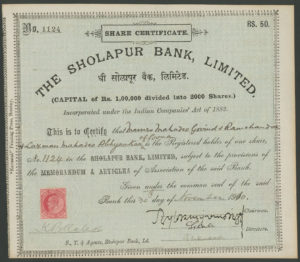 No. 1124 RS. 50.
SHARE CERTIFICATE.
THE SHOLAPUR BANK, LIMITED.
धी सोलापुर बँक, लिमिटेड.
(CAPITAL of Rs. 1,00,000 divided into 2000 Shares.)
Incorporated under the Indian Companies' Act of 1882.
This is to Certify that Mahadeo Govind & Ramchandra
Laxman Mahadeo is the Registered holder of one share,
No. 1124 in the SHOLAPUR BANK, LIMITED, subject to the provisions of the
MEMORANDUM & ARTICLES of Association of the said Bank.
Given under the common seal of the said
Bank this day of November 1910.
Chairman.
S. T. & Agents, Sholapur Bank, Ld.
Directors.